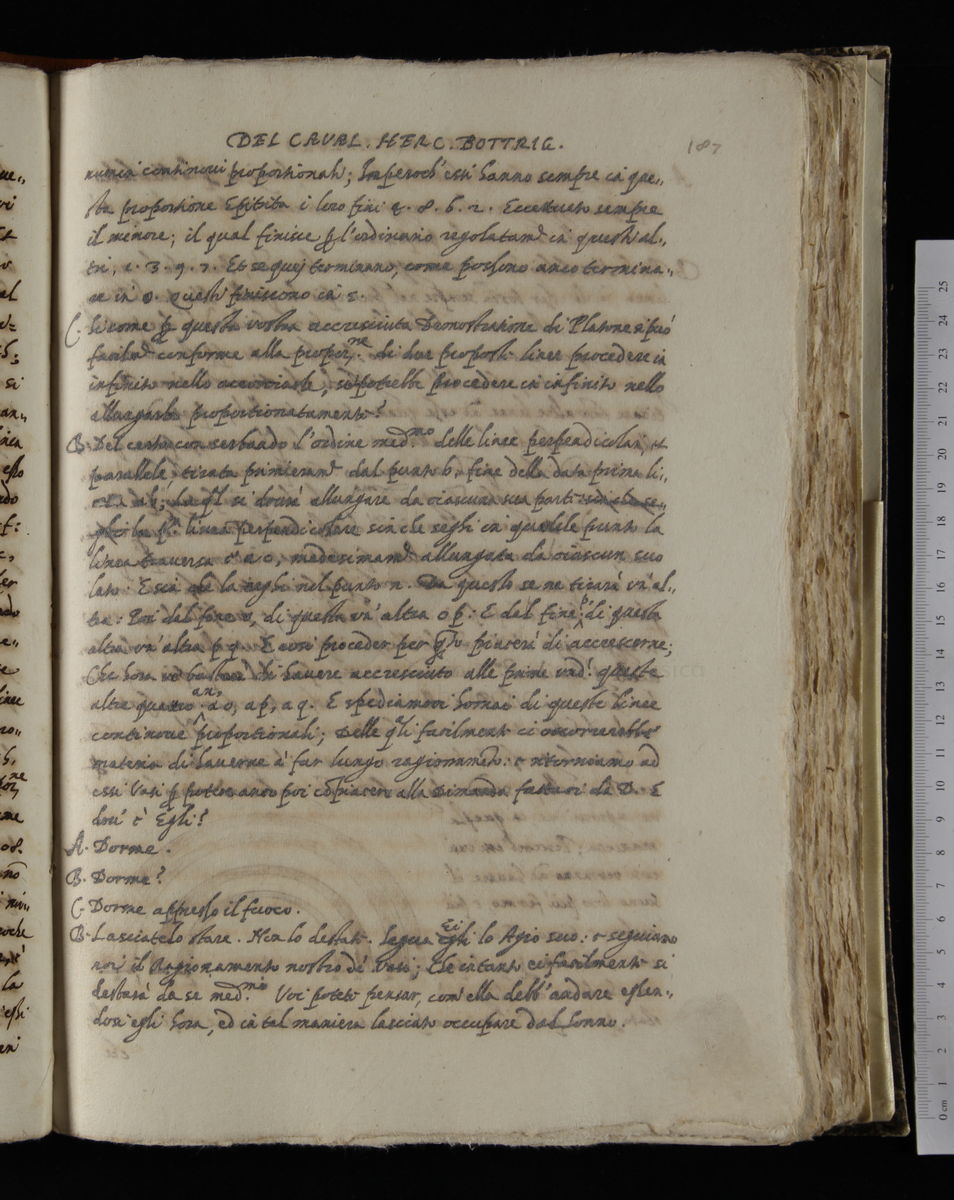 DEL CAVAL. HERC. BOTTRIG.
187
numeri continoui proportionali; Imperoch' essi hanno sempre in que„
sta proportione Epitrita i loro fini 4. 8. 6. 2. Eccettuato sempre
il minore; il qual finisce p l'ordinario regolatam.e in questi al„
tri, 1. 3. 9. 7. Et se quej terminano, come possono anco termina„
re in 0. questi finiscono in 5.
C. Si come p questa vostra accresciuta Demostratione di Platone si può
facilm.e conforme alla propor.ne di due proposte linee procedere in
infinito nello accorciarle, si potrebbe procedere in infinito nello
allungarle proportionatamente?
B. Del certo conservando l'ordine med.mo delle linee perpendicolari, et
parallele, tirata primieram.e dal punto b, fine della data prima li„
nea a b; La q.l si dovrà allungare da ciascuna sua parte
la linea perpendicolare sin che seghi in qualche punto la
linea traversa e a c, medesimam.e allungata da ciascun suo
lato: E sia che la seghi nel punto n. Da questo se ne tirarà vn' al„
tra: Poi dal fine o, di questa vn' altra o p: E dal fine p di questa
altra vn' altra p q. E così proceder per q.to piacerà di accrescerne;
Che hora vi bastarà di havere accresciuto alle prime queste
altre quattro an, ao, ap, aq. E spediamoci homai di queste linee
continoue proportionali; Delle q.li facilmente ci occorrerebbe
materia di haverne à far lungo ragionamento: e ritorniamo ad
essi Vasi p potere anco poi cōpiacere alla Dimanda fattaci da D. E
dou' è Egli?
A. Dorme.
B. Dorme?
C. Dorme appresso il fuoco.
B. Lasciatelo stare. Non lo destate. Segua Ei egli lo Agio suo: e seguiamo
noi il Ragionamento nostro de' Vasi; Che intanto ei facilmente si
destarà da se med.mo Voi potete pensar, com' ella debb' andare essen„
dosi egli hora, ed in tal maniera lasciato occupare dal sonno.